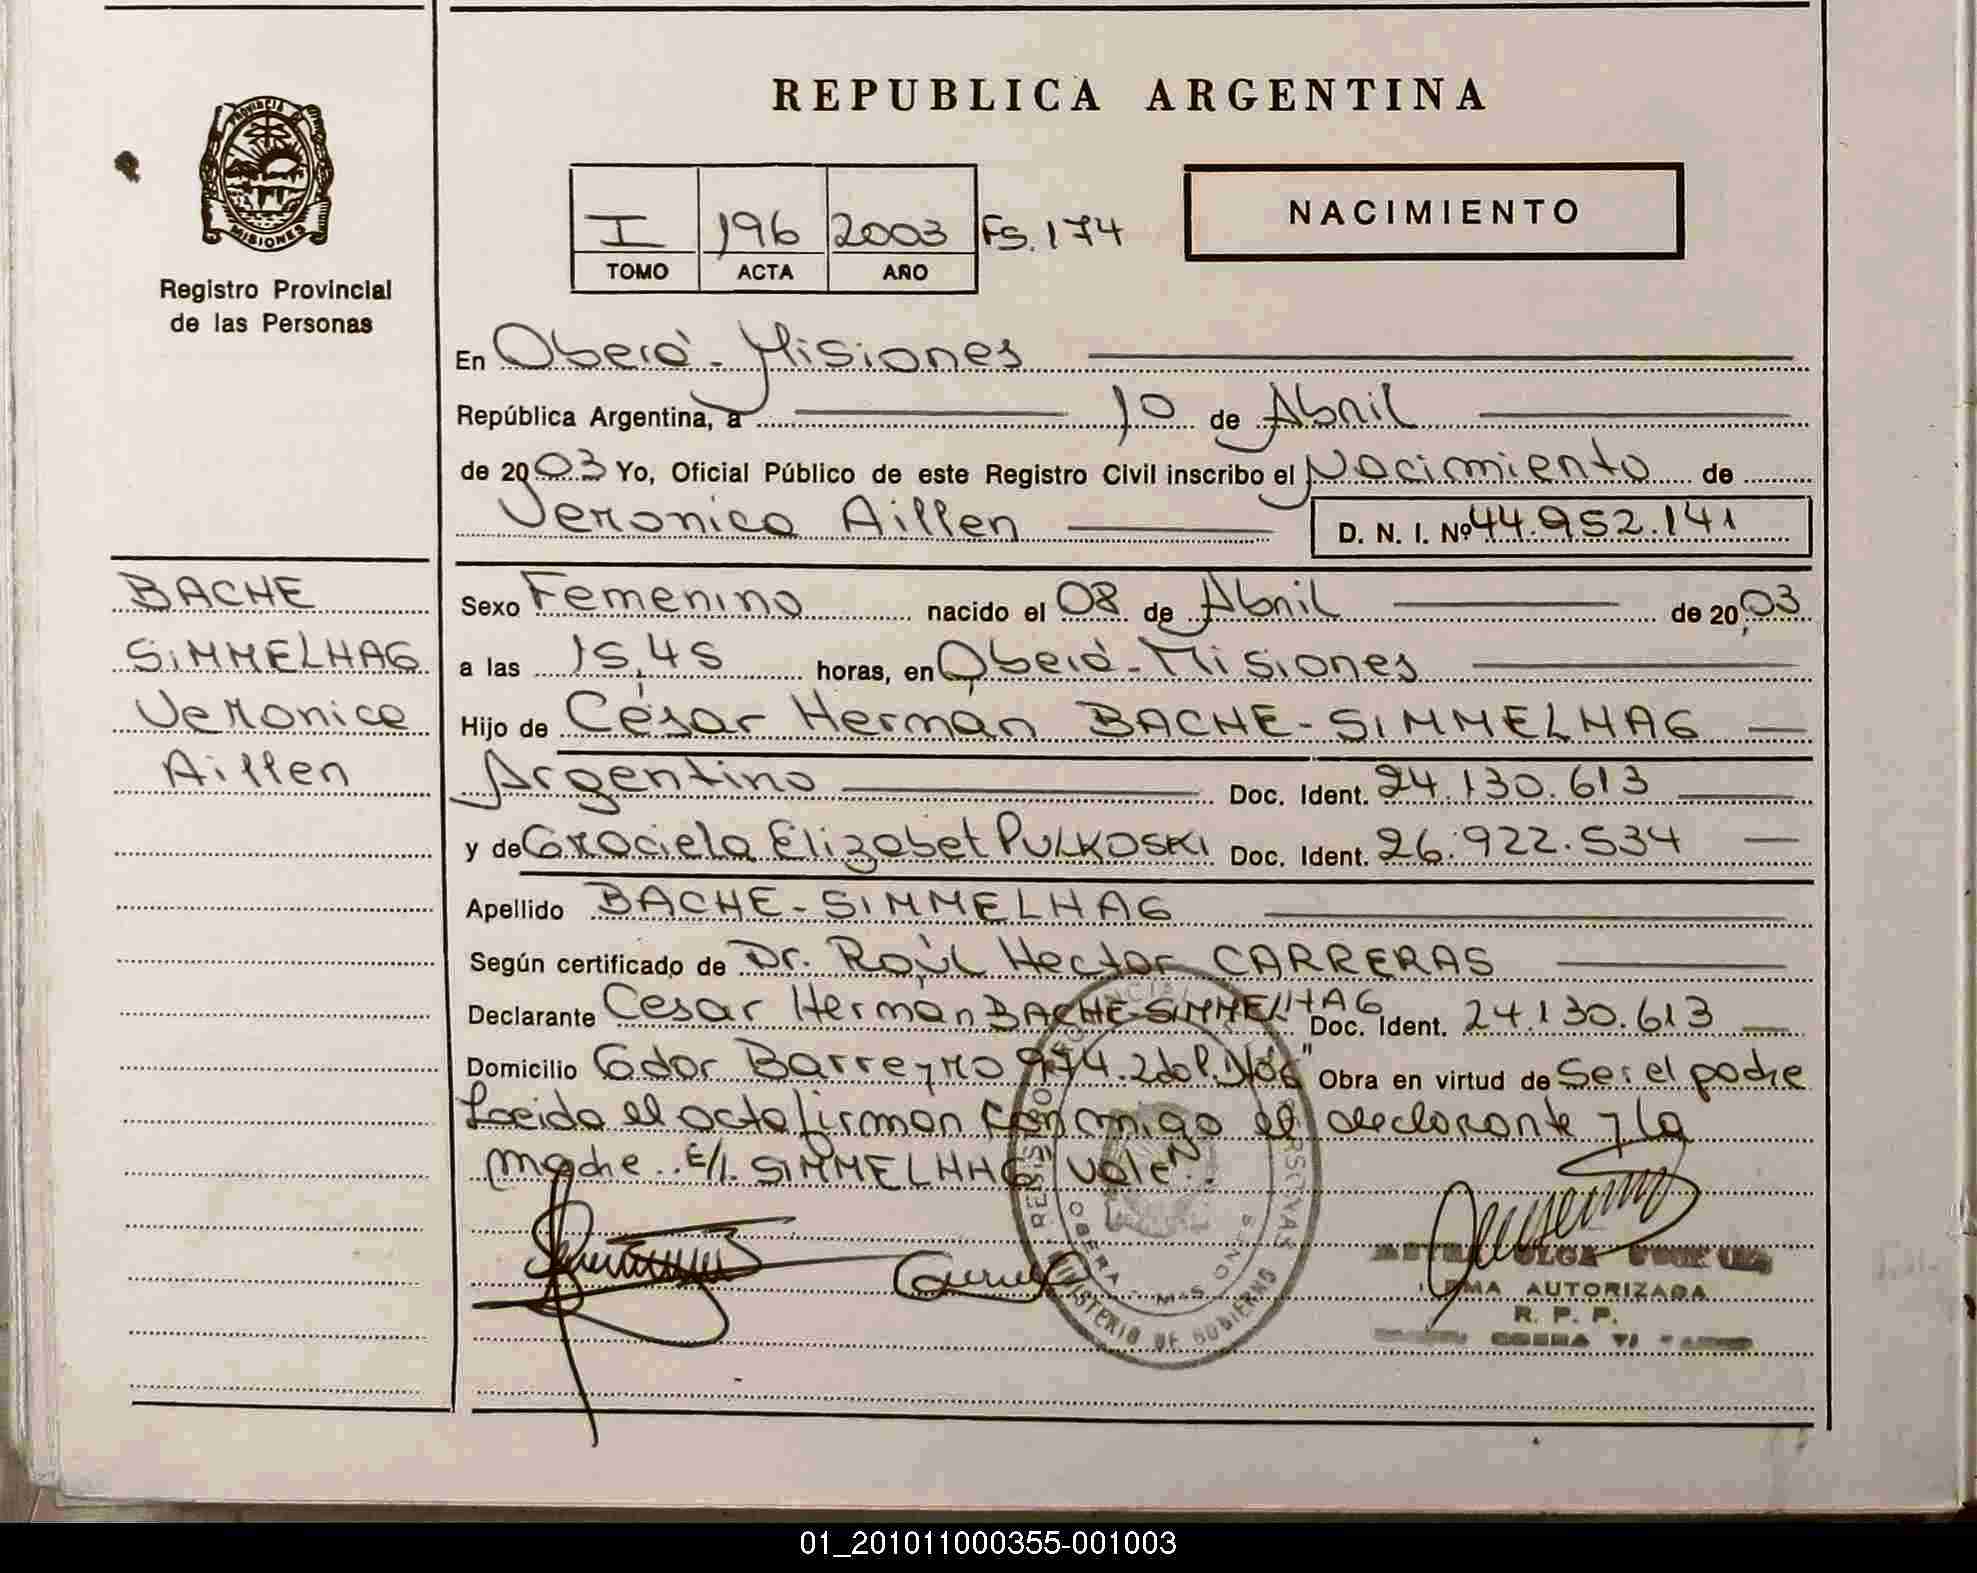 REPUBLICA ARGENTINA
PROVINCIA DE
MISIONES
Registro Provincial
de las Personas
NACIMIENTO
I 196 2003 Fs. 174
TOMO ACTA AÑO
En Oberá - Misiones
República Argentina, a 10 de Abril
de 2003 Yo, Oficial Público de este Registro Civil inscribo el Nacimiento de
Veronica Aillen D. N. I. Nº 44.952.141
BACHE
SIMMELHAG
Veronica
Aillen
Sexo Femenino nacido el 08 de Abril de 2003
a las 15,45 horas, en Oberá - Misiones
Hijo de César Hermán BACHE - SIMMELHAG
Argentino Doc. Ident. 24.130.613
y de Graciela Elizabet PULKOSKI Doc. Ident. 26.922.534
Apellido BACHE - SIMMELHAG
Según certificado de Dr. Raúl Hector CARRERAS
Declarante Cesar Hermán BACHE-SIMMELHAG Doc. Ident. 24.130.613
Domicilio Gdor Barreyro 974 Obra en virtud de Ser el padre
Leida el acta firman conmigo el declarante y la
madre. E/l. SIMMELHAG" vale.
REGISTRO
OBERA - MISIONES
MINISTERIO DE GOBIERNO
OLGA
FIRMA AUTORIZADA
R. P. P.
01_201011000355-001003